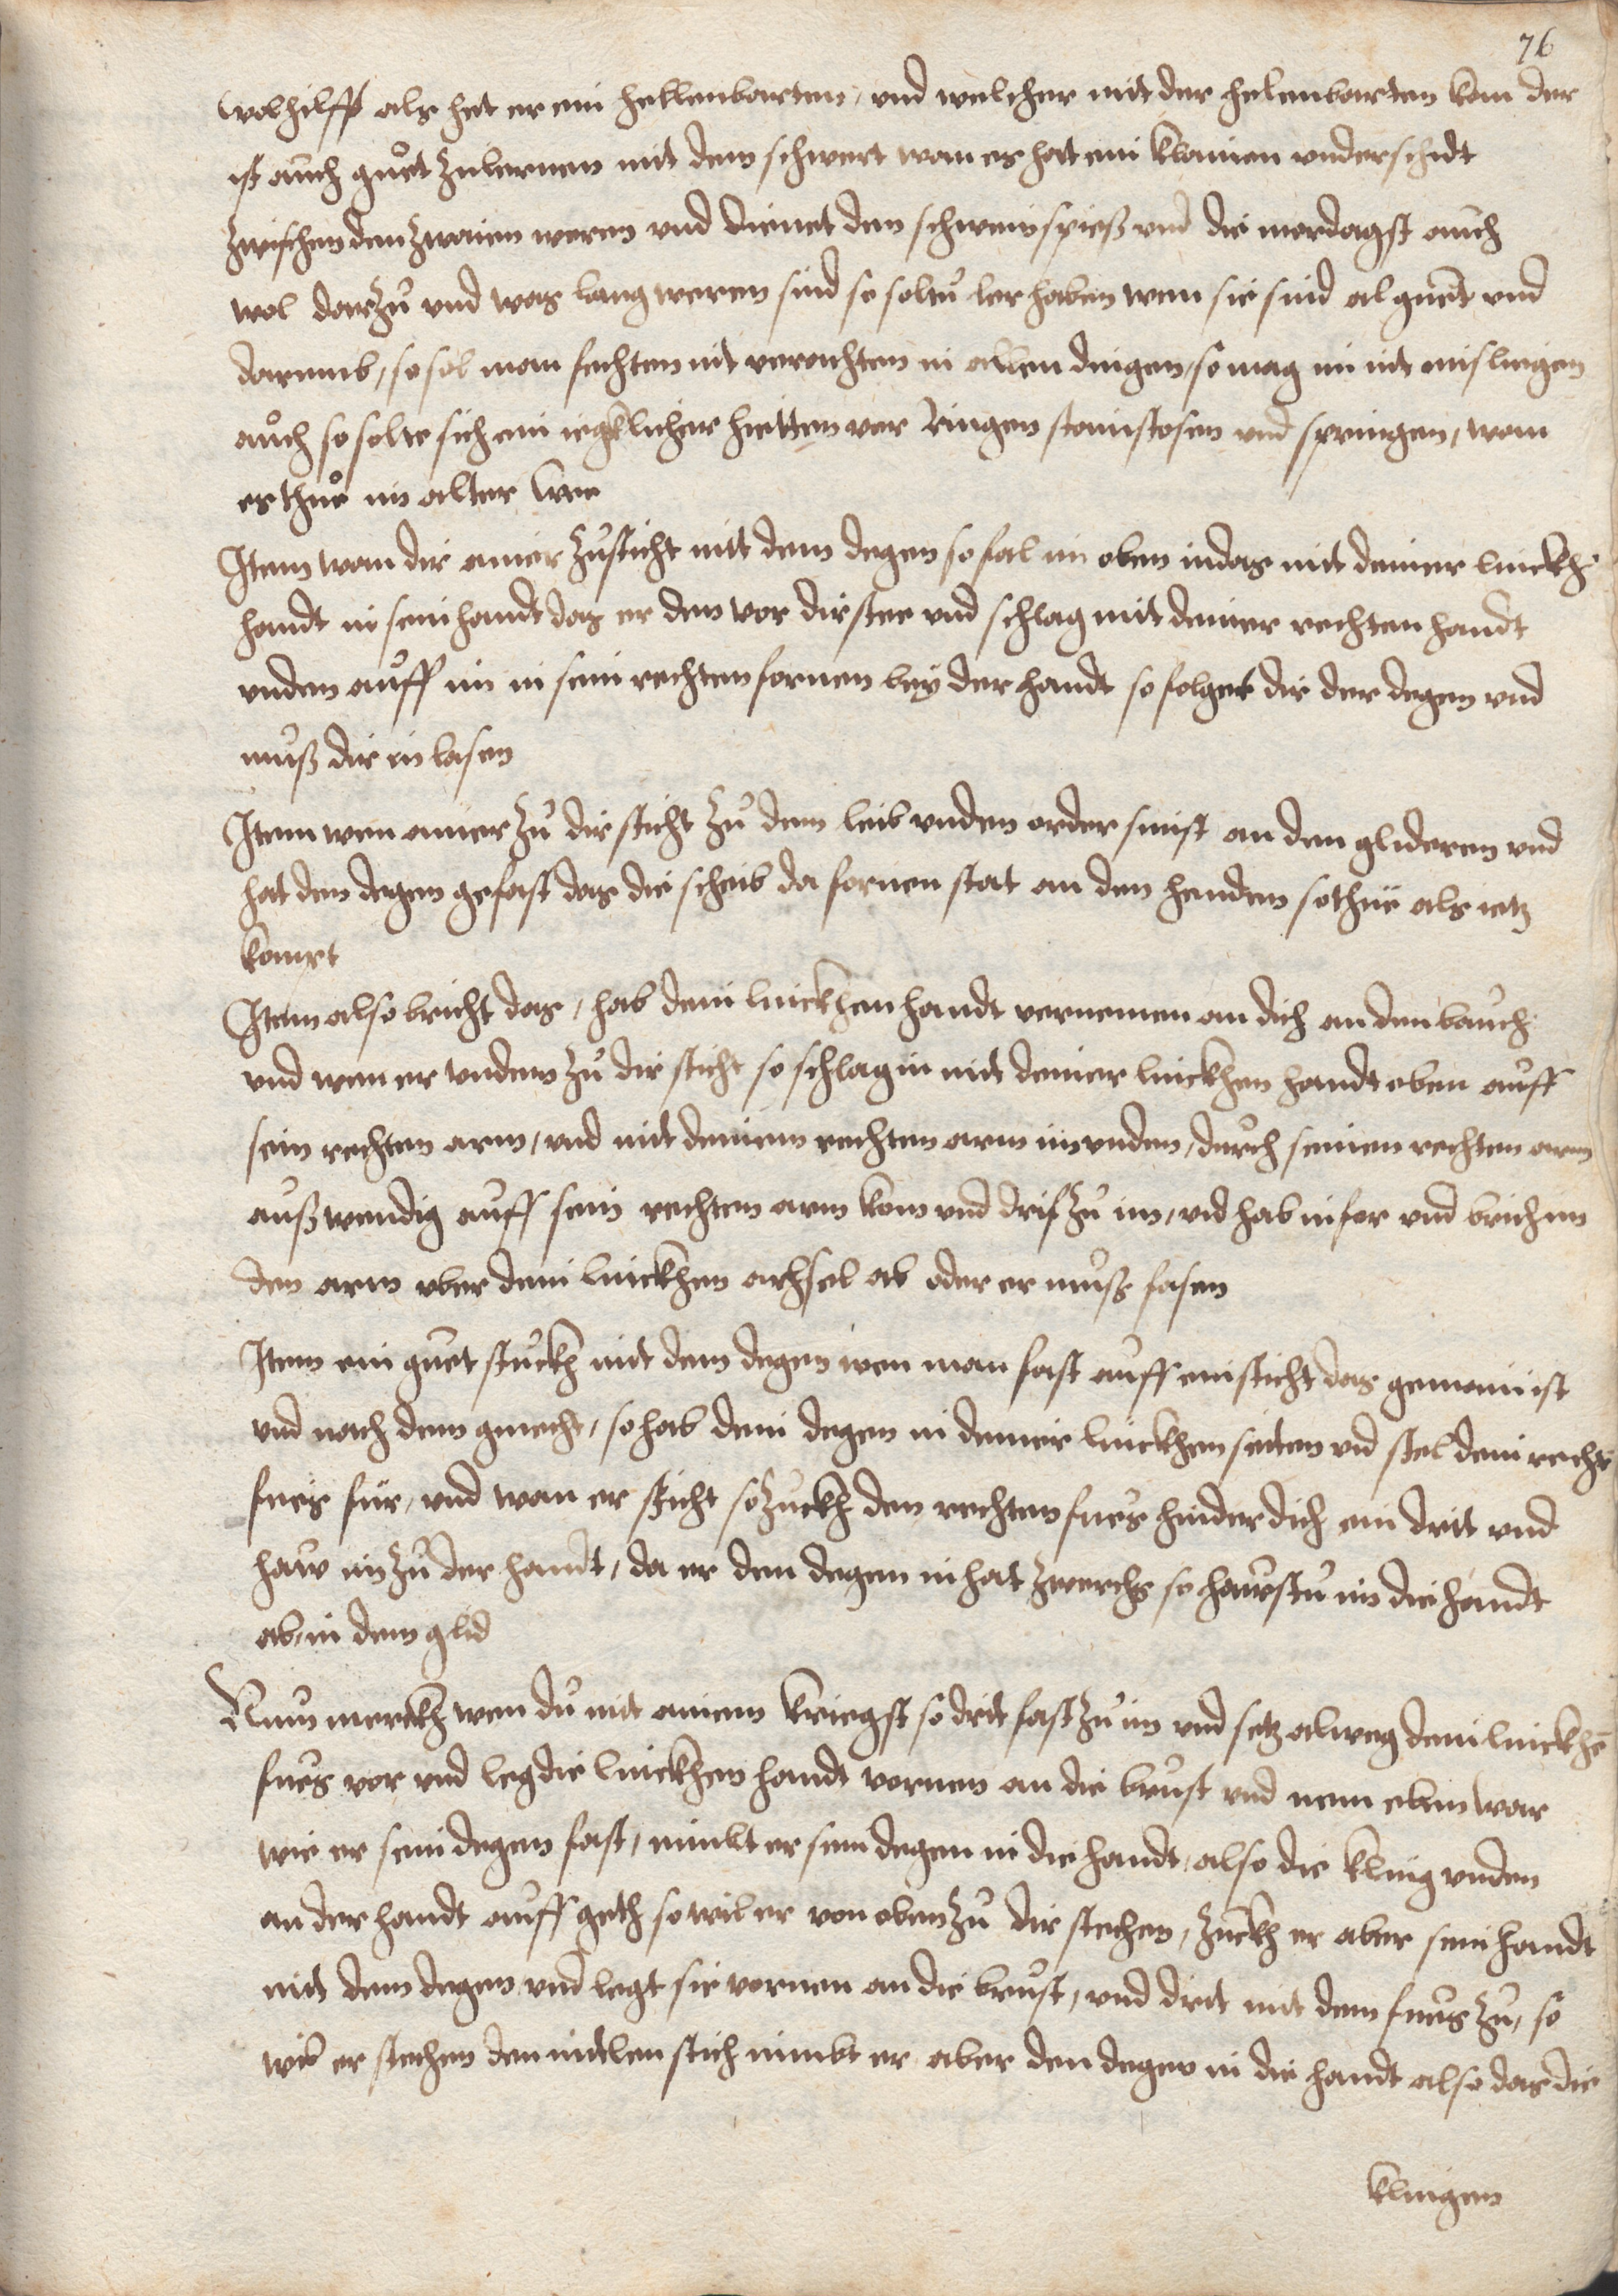 76
wolhilfft als het er ein hellenbarten, vnd welcher mit der helenbarten kan der
ist auch guet zulernen mit dem schwert wan es hat ein klainen vnderschidt
zwischen den zwaien weren vnd dienet den schweinspiess vnd die mordagst auch
wol darzu vnd was lang weren sind so soltu ler haben wen sie sind al guet vnd
darumb, so sol man fechten nit verachten in allen dingen, so mag im nit mislingen
auch so solte sich ein iegklicher hietten vor Ringen stainstosen vnd springen, wan
es thue im alter wee
Item wan dir ainer zusticht mitt dem degen so fal im oben indas mit deiner linckh
handt in sein handt das er den vor dir stee vnd schlag mit deiner rechten handt
vnden auff im in sein rechten fornen bey der handt so folget dir der degen vnd
muss dir in lasen
Item wen ainer zu dir sticht zu dem leib vnden order sunst an den glideren vnd
hat den degen gefast das die scheib da fornen stat an den henden so thue als ietz
komet
Item also bricht das, hab dein linckhen handt vornemen an dich an den bauch
vnd wen er vnden zu dir sticht so schlag in mit deiner linckhen handt oben auff
sein rechten arm, vnd mit deinem rechten arm im vnden, durch seinen rechten arm
ausswendig auff sein rechten arm kom vnd drit zu im, vnd hab in fer vnd brich im
den arm vber dein linckhen achsel ab oder er muss lasen
Item ein guet stuckh mit dem degen wen man fast auff ein sticht das gemain ist
vnd nach dem gmecht, so hab dein degen in deiner linckhen seiten vnd stel dein recht
fues für, vnd wan er sticht so zuckh den rechten fues hinder dich ein drit vnd
haw im zu der handt, da er den degen in hat zwerchs so hawstu im die handt
ab, in dem glid
Nun merckh wen du mit ainem kriegst so drit fast zu im vnd setz alweg dein linckhē
fues vor vnd leg die linckhen handt vornen an die brust vnd nem eben war
wie er sein degen fast, nimbt er sein degen in die handt, also die kling vnden
an der handt auff geth so wil er von oben zu dir stechen, zuckh er aber sein handt
mit dem degen vnd legt sie vornen an die brust, vnd drit mit dem fues zu, so
wil er stechen den mitlen stich nimbt er aber den degen in die handt also das die
klingen